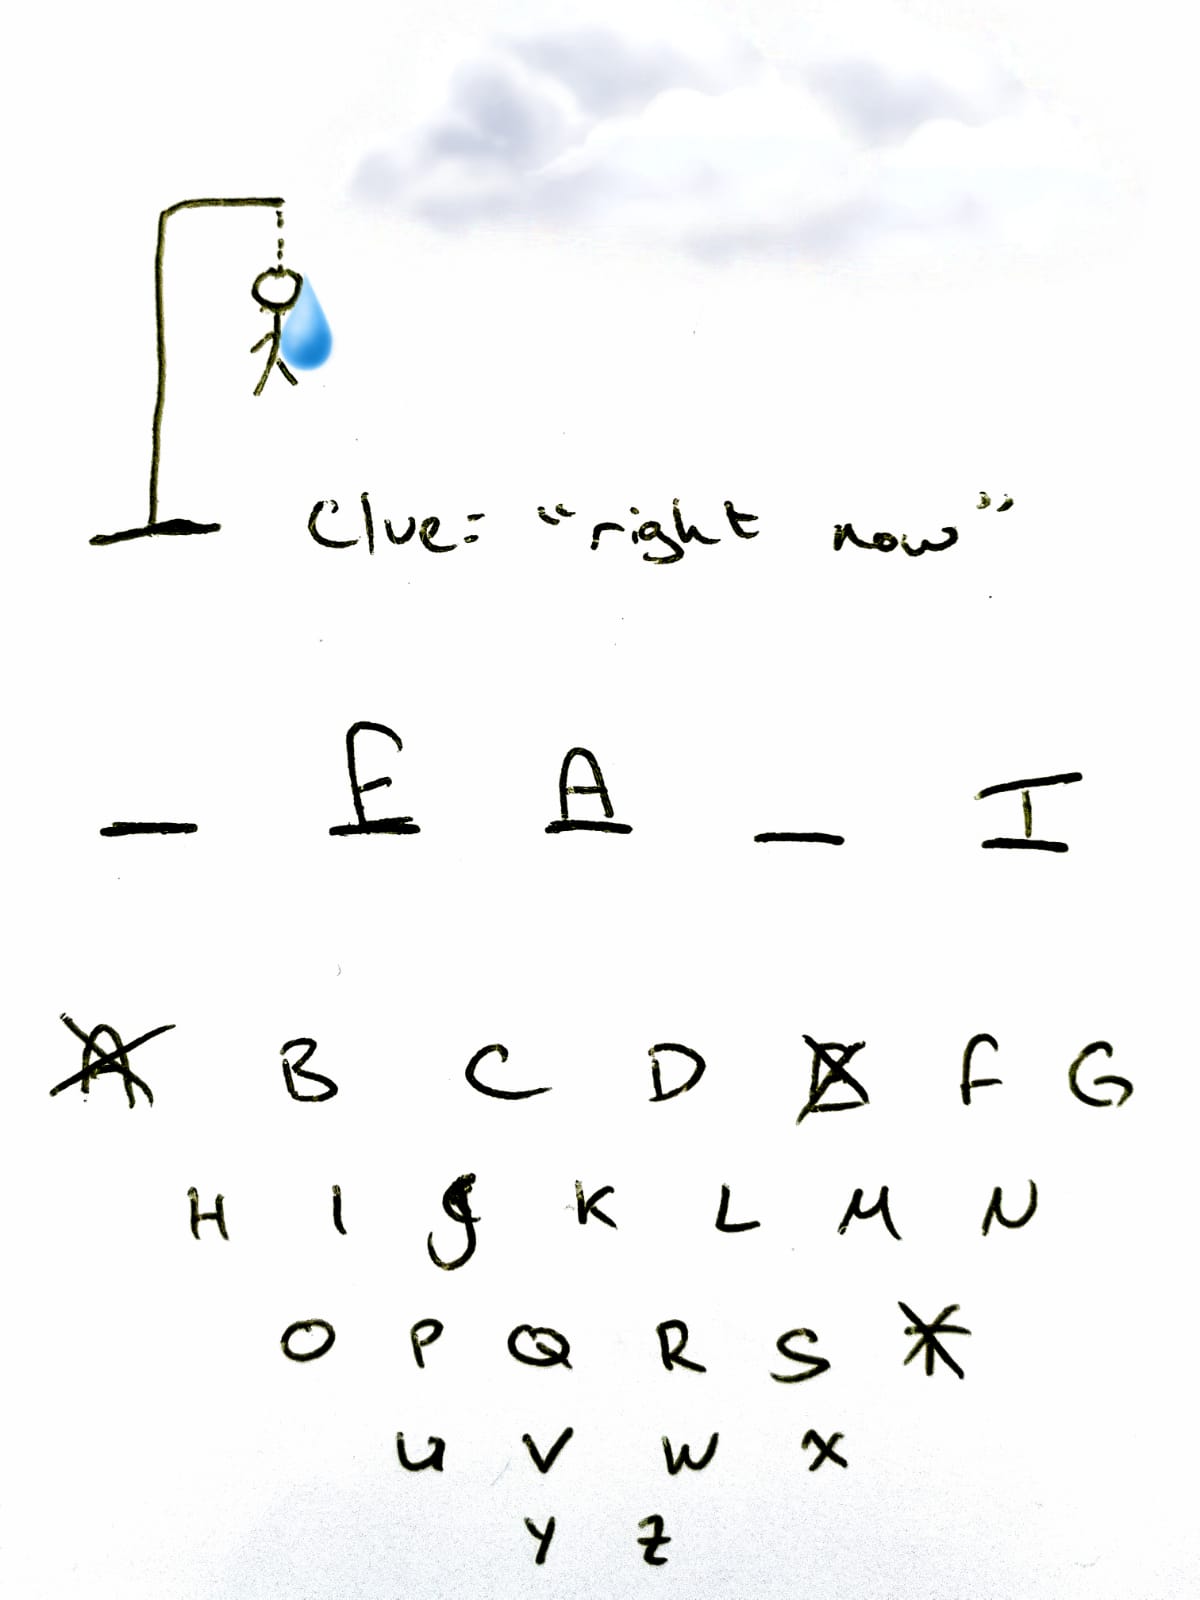 Clue: "right now"
_ E A _ T
A B C D E F G
H I J K L M N
O P Q R S T
U V W X
Y Z